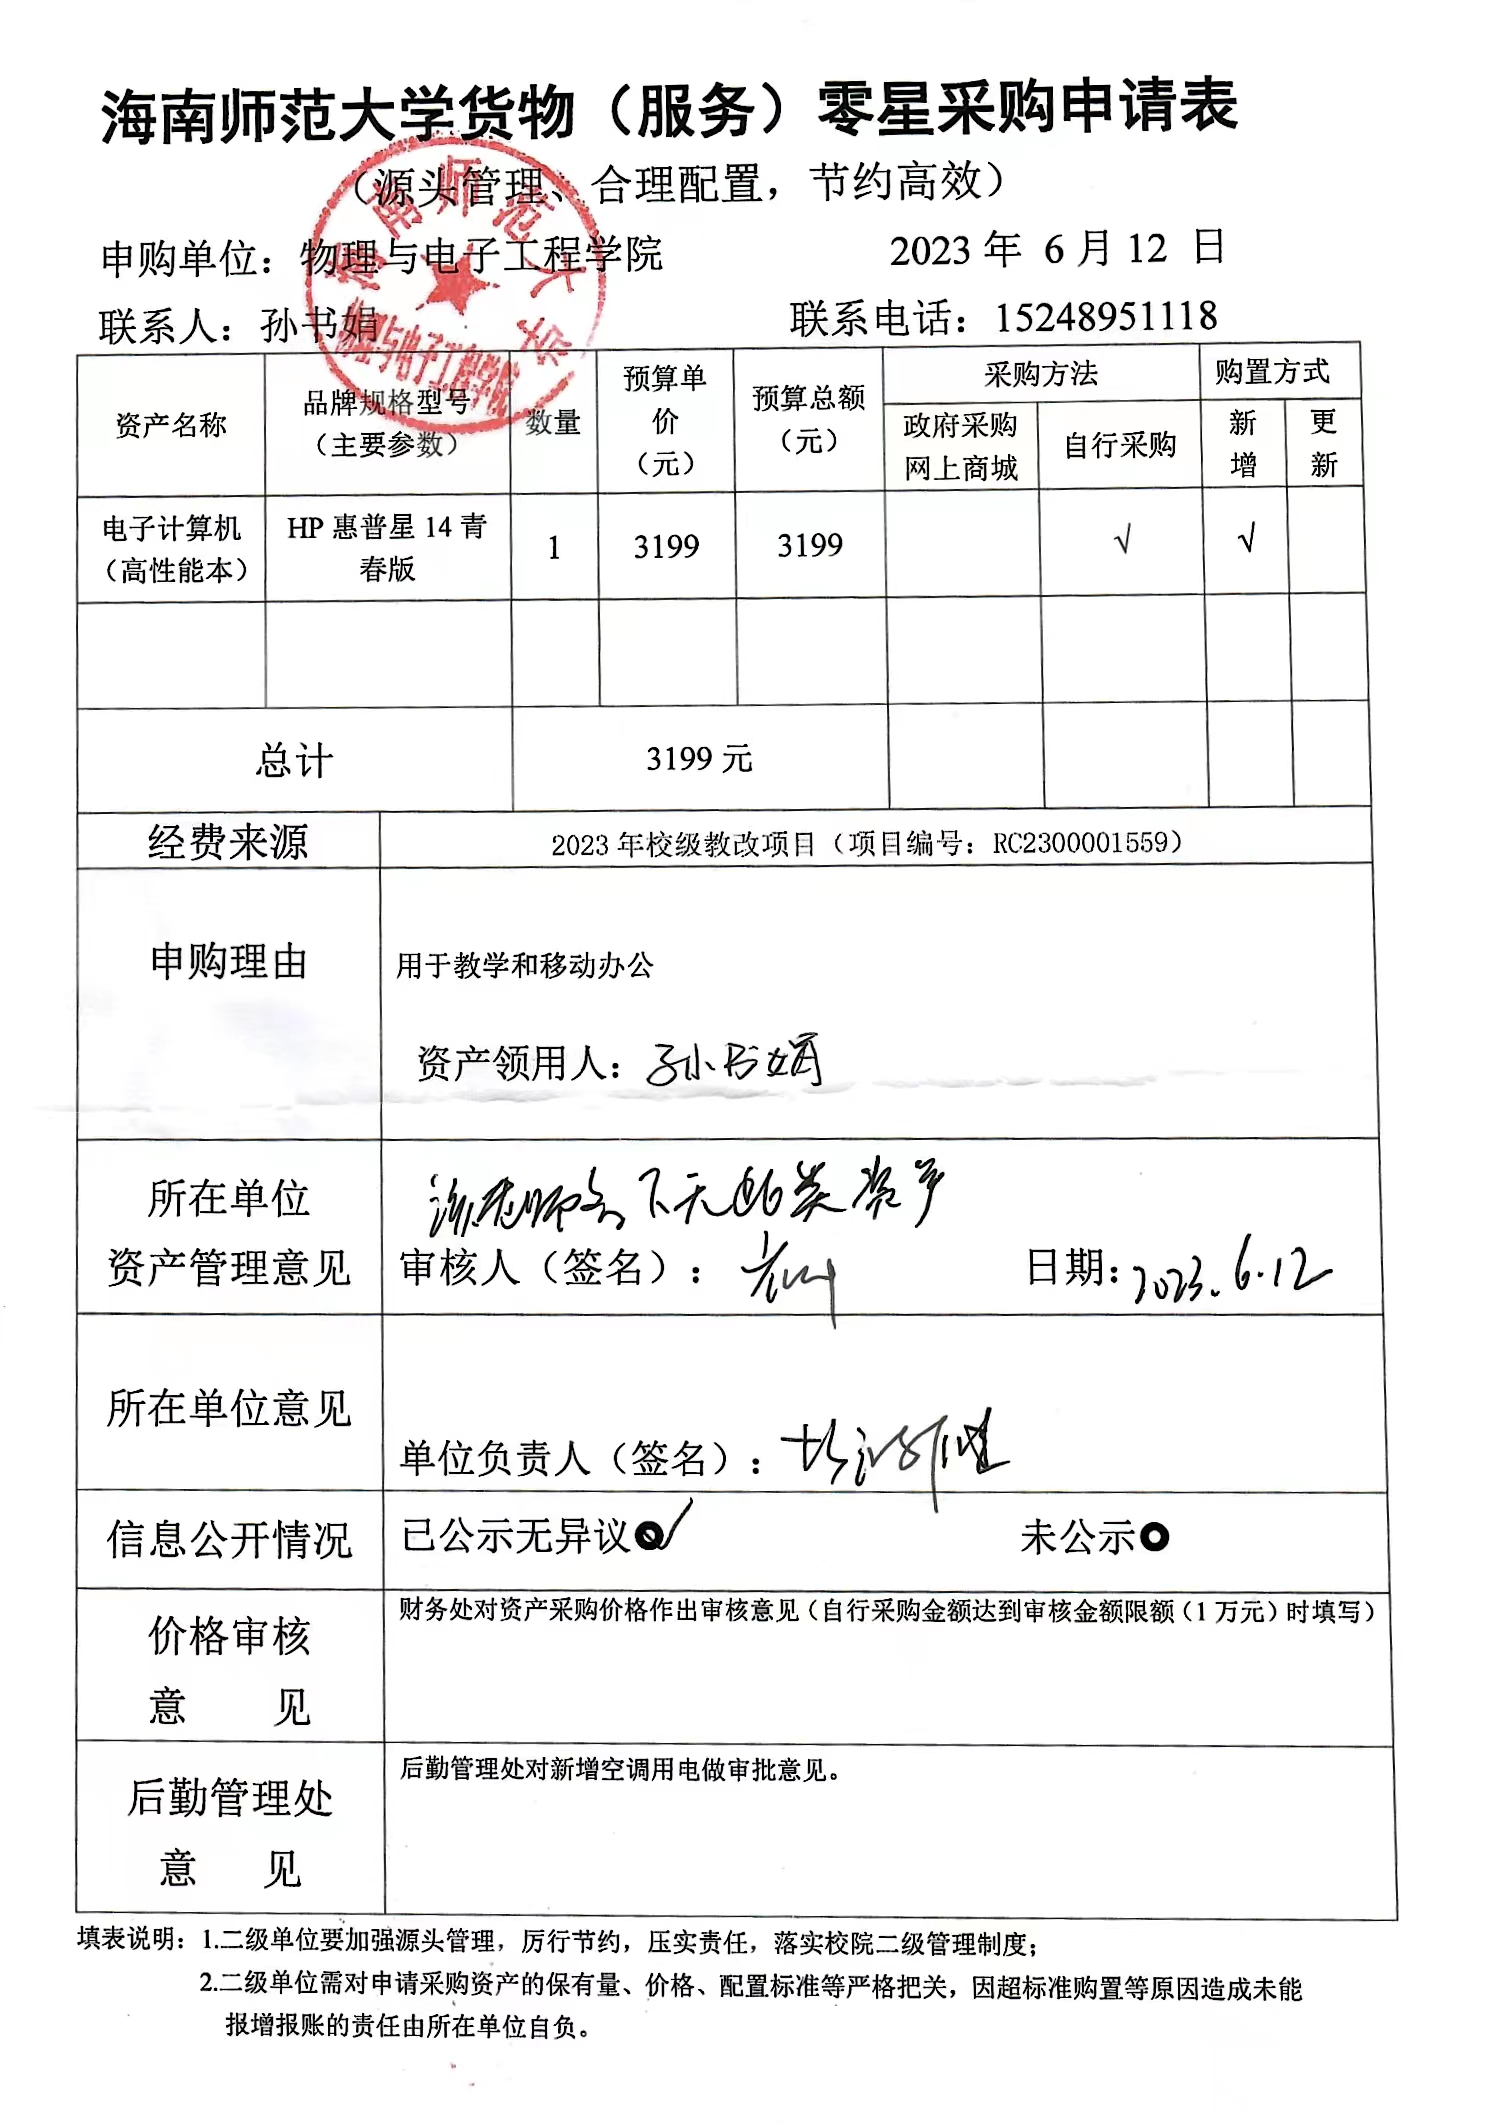 海南师范大学货物（服务）零星采购申请表
（源头管理、合理配置，节约高效）
申购单位：物理与电子工程学院 2023 年 6 月 12 日
联系人：孙书娟 联系电话：15248951118
海南师范大学
物理与电子工程学院
资产名称 品牌规格型号（主要参数） 数量 预算单价（元） 预算总额（元） 采购方法 购置方式
政府采购网上商城 自行采购 新增 更新
电子计算机（高性能本） HP 惠普星 14 青春版 1 3199 3199 √ √
总计 3199 元
经费来源 2023 年校级教改项目（项目编号：RC2300001559）
申购理由 用于教学和移动办公
资产领用人：孙书娟
所在单位 该老师名下无此类资产
资产管理意见 审核人（签名）： 日期：2023.6.12
所在单位意见
单位负责人（签名）：
信息公开情况 已公示无异议 ✓ 未公示
价格审核 财务处对资产采购价格作出审核意见（自行采购金额达到审核金额限额（1 万元）时填写）
意 见
后勤管理处 后勤管理处对新增空调用电做审批意见。
意 见
填表说明：1.二级单位要加强源头管理，厉行节约，压实责任，落实校院二级管理制度；
2.二级单位需对申请采购资产的保有量、价格、配置标准等严格把关，因超标准购置等原因造成未能
报增报账的责任由所在单位自负。